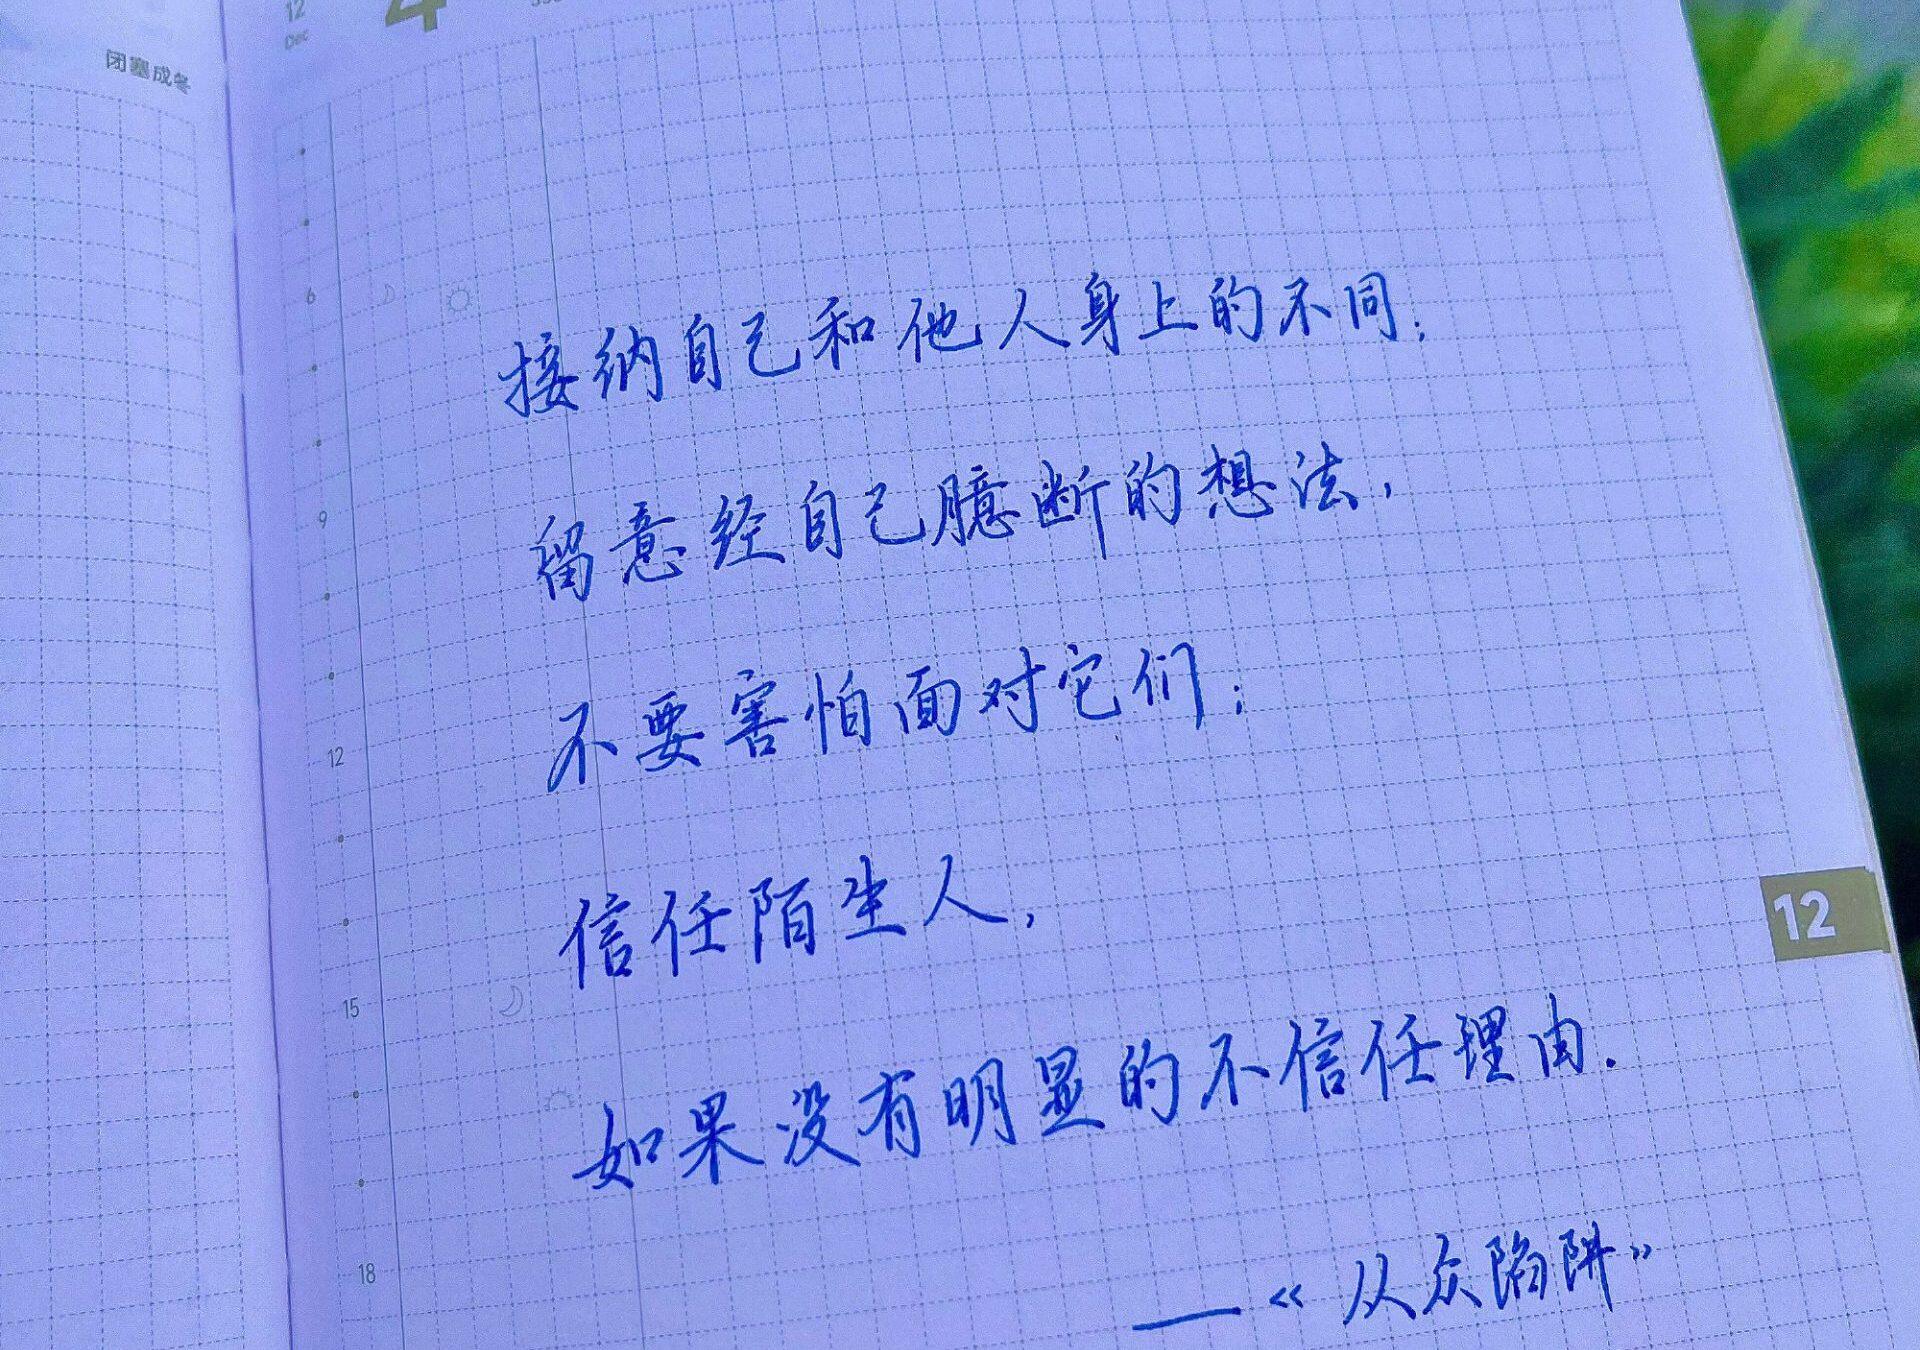 闭塞成冬
12
Dec
4
接纳自己和他人身上的不同；
留意经自己臆断的想法，
不要害怕面对它们；
信任陌生人，
如果没有明显的不信任理由.
——《从众陷阱》
6
9
12
15
18
12